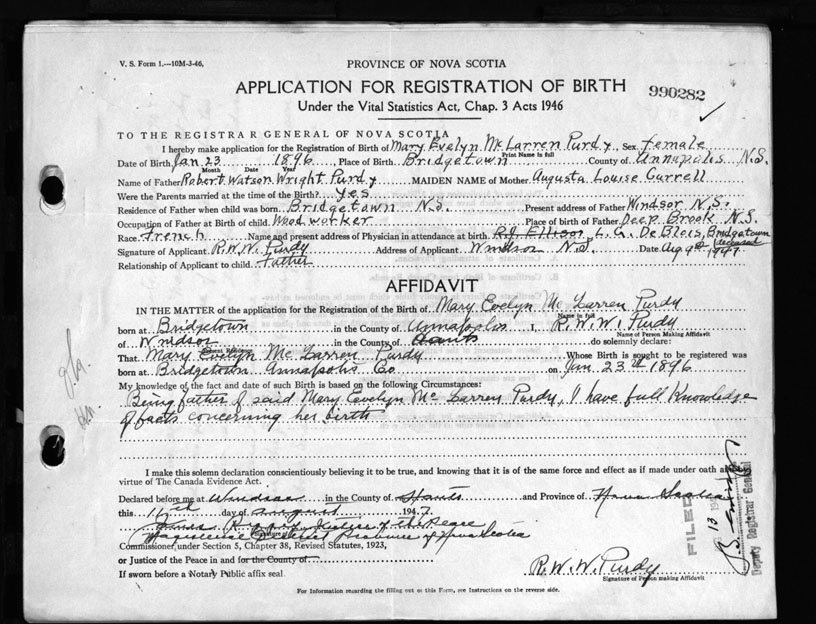 V. S. Form 1.—10M-3-46.
PROVINCE OF NOVA SCOTIA
APPLICATION FOR REGISTRATION OF BIRTH
990282
Under the Vital Statistics Act, Chap. 3 Acts 1946
TO THE REGISTRAR GENERAL OF NOVA SCOTIA
I hereby make application for the Registration of Birth of Mary Evelyn Mc Larren Purdy, Sex female
Print Name in full
Date of Birth Jan 23 1896, Place of Birth Bridgetown County of Annapolis N.S.
Month Date Year
Name of Father Robert Watson Wright Purdy MAIDEN NAME of Mother Augusta Louise Currell
Were the Parents married at the time of the Birth? Yes
Residence of Father when child was born Bridgetown N.S. Present address of Father Windsor N.S.
Occupation of Father at Birth of child Wood worker Place of birth of Father Deep Brook N.S.
Race French Name and present address of Physician in attendance at birth R.J. Ellison L. G. De Blois, Bridgetown
deceased
Signature of Applicant R.W.W. Purdy Address of Applicant Windsor N.S. Date Aug 9th 1947
Relationship of Applicant to child Father
AFFIDAVIT
IN THE MATTER of the application for the Registration of the Birth of Mary Evelyn Mc Larren Purdy
Name in full
born at Bridgetown in the County of Annapolis I, R.W.W. Purdy
Name of Person Making Affidavit
of Windsor in the County of Hants do solemnly declare:
That Mary Evelyn Mc Larren Purdy Whose Birth is sought to be registered was
born at Bridgetown Annapolis Co on Jan 23d 1896
My knowledge of the fact and date of such Birth is based on the following Circumstances:
Being father of said Mary Evelyn Mc Larren Purdy, I have full Knowledge
of facts concerning her birth
I make this solemn declaration conscientiously believing it to be true, and knowing that it is of the same force and effect as if made under oath and by
virtue of The Canada Evidence Act.
Declared before me at Windsor in the County of Hants and Province of Nova Scotia
this 11th day of August 1947
Justice of the Peace
Province of Nova Scotia
Commissioner, under Section 5, Chapter 38, Revised Statutes, 1923,
or Justice of the Peace in and for the County of
If sworn before a Notary Public affix seal.
R.W.W. Purdy
Signature of Person making Affidavit
For Information regarding the filling out of this Form, see Instructions on the reverse side.
FILED
13
Deputy Registrar General